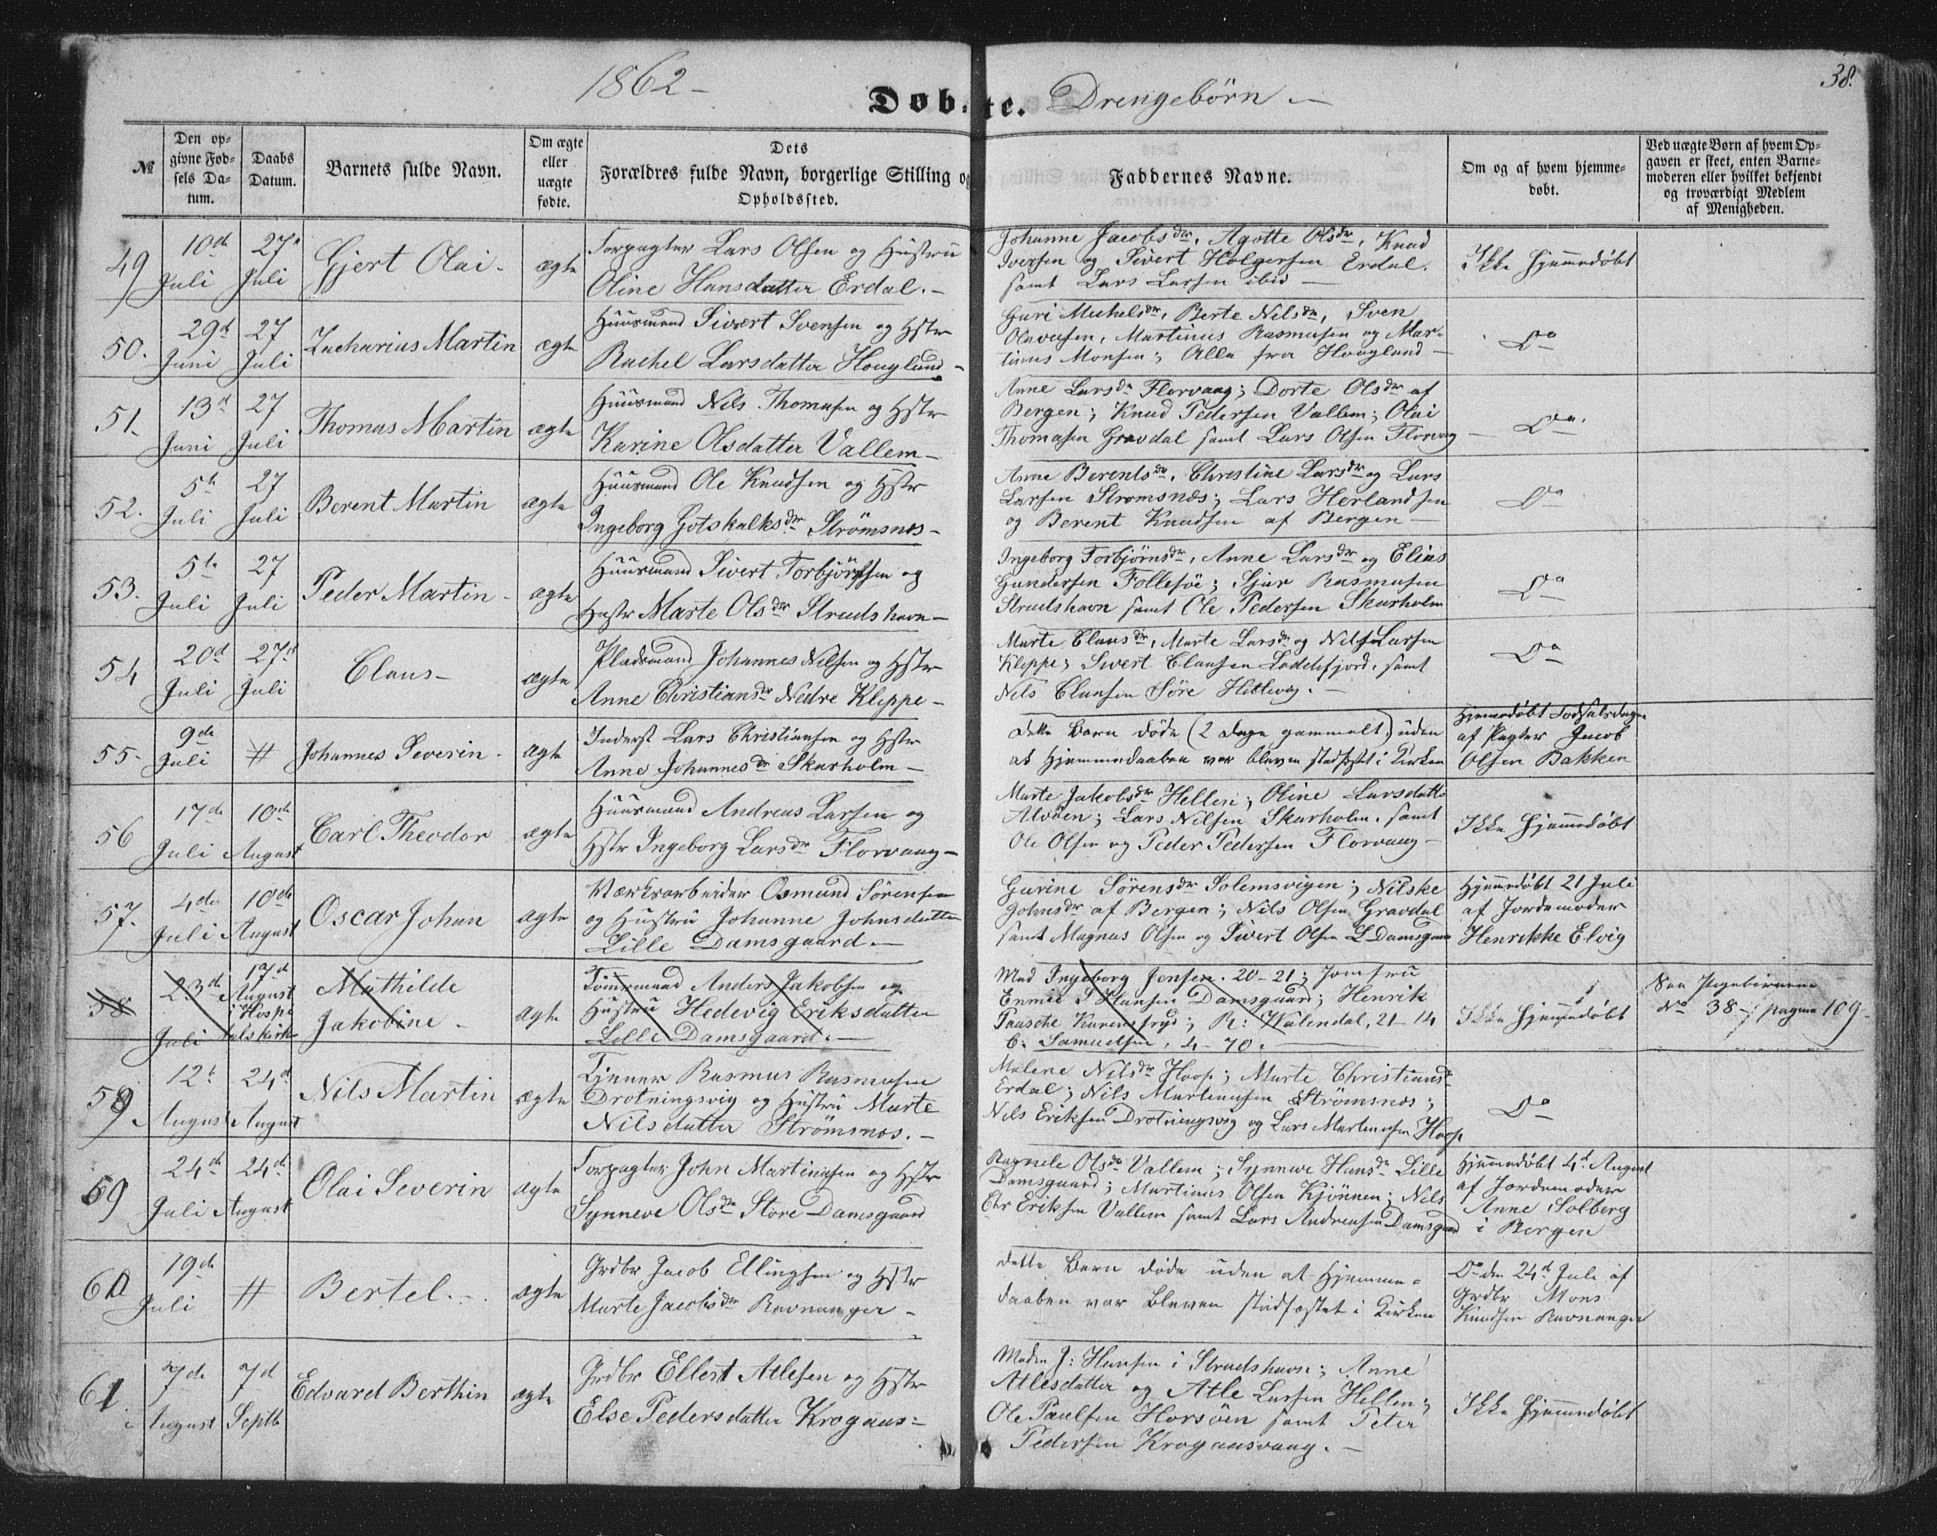 1862 –
Døbte. Drengebørn –
38.
№
Den opgivne Fødsels Datum.
Daabs Datum.
Barnets fulde Navn.
Om ægte eller uægte fødte.
Dets Forældres fulde Navn, borgerlige Stilling og Opholdssted.
Faddernes Navne.
Om og af hvem hjemmedøbt.
Ved uægte Børn af hvem Opgaven er skeet, enten Barnemoderen eller hvilket bekjendt og troværdigt Medlem af Menigheden.
49
10de Juli
27 Juli
Gjert Olai –
ægte
Forpagter Lars Olsen og Hustru
Oline Hansdatter Erdal. –
Johanne Jacobsdr, Agotte Olsdr, Knud
Iversen og Sivert Holgersen Erdal.
samt Lars Larsen ibid –
Ikke hjemmedøbt
50.
29d Juni
27 Juli
Zacharius Martin
ægte
Huusmand Sivert Svensen og Hstr
Rachel Larsdatter Houglund –
Guri Michelsdr, Berte Nilsdr, Sven
Olavesen, Martinus Rasmusen og Mar-
tinus Monsen; Alle fra Hougland –
Do
51.
13d Juni
27 Juli
Thomas Martin
ægte
Huusmand Nils Thomasen og Hstr
Karine Olsdatter Vallem –
Anne Larsdr Florvaag; Dorte Olsdr af
Bergen; Knud Pedersen Vallem; Olai
Thomasen Gravdal samt Lars Olsen Florvag –
Do.
52.
5te Juli
27 Juli
Berent Martin
ægte
Huusmand Ole Knudsen og Hstr
Ingeborg Gotskalksdr Strømsnes –
Anne Berentsdr, Christine Larsdr og Lars
Larsen Strømsnes; Lars Herlandsen
og Berent Knudsen af Bergen –
Do
53.
5te Juli
27 Juli
Peder Martin –
ægte
Huusmand Sivert Torbjørnsen og
Hustr Marte Olsdr Strudshavn –
Ingeborg Torbjørnsdr, Anne Larsdr og Elias
Gundersen Follesøe; Sjur Rasmusen
Strudshavn samt Ole Pedersen Skarholm
Do
54
20d Juli
27d Juli
Claus –
ægte
Pladsmand Johannes Nilsen og Hstr
Anne Christiansdr Nedre Kleppe –
Marte Clausdr, Marte Larsdr og Nils Larsen
Kleppe; Sivert Clausen Loddefjord, samt
Nils Clausen Søre Hitlevog. –
Do
55 –
9de Juli
#
Johannes Severin –
ægte
Inderst Lars Christiansen og Hstr
Anne Johannesdr Skarholm –
Dette Barn døde (2 Dage gammelt) uden
at Hjemmedaaben var bleven stadfæstet i Kirken
Hjemmedøbt Fødselsdagen
af Pagter Jacob
Olsen Bakken
56
17de Juli
10de August
Carl Theodor
ægte
Huusmand Andreas Larsen og
Hstr Ingeborg Larsdr Florvaag –
Marte Jakobsdr Hellen; Oline Larsdatter
Alvøen; Lars Nilsen Skarholm, samt
Ole Olsen og Peder Pedersen Florvaag –
Ikke hjemmedøbt
57.
4de Juli
10de August
Oscar Johan
ægte
Værksarbeider Osmund Sørensen
og Hustru Johanne Johnsdatter
Lille Damsgaard. –
Gurine Sørensdr Solemsvigen; Nilske
Johnsdr af Bergen; Nils Olsen Gravdal
samt Magnus Olsen og Sivert Olsen L Damsgaard
Hjemmedøbt 21 Juli
af Jordemoder
Henrikke Elvig
58
23de Juli
17d August i Hospitalskirke
Mathilde
Jakobine –
ægte
Tømmermand Anders Jakobsen og
Hustru Hedevig Eriksdatter
Lille Damsgaard. –
Mad Ingeborg Jensen. 20–21; Jomfru
Emmie T Hansen Damsgaard; Henrik
R: Walendal, 21–14
C. Samuelsen, 4–70. –
Ikke hjemmedøbt
See Pigebørnene
No 38 – pagina 109 –
59
12te August
24de August
Nils Martin
ægte
Tjener Rasmus Rasmusen
Drotningsvig og Hustru Marte
Nilsdatter Strømsnes. –
Malene Nilsdr Hoop; Marte Christiansdr
Erdal; Nils Martinusen Strømsnes;
Nils Eriksen Drotningsvig og Lars Martinusen Hoop
Do
59
24de Juli
24de August
Olai Severin
ægte
Forpagter John Martinusen og Hstr
Synneve Olsdr Store Damsgaard
Ragnele Olsdr Vallem; Synneve Hansdr Lille
Damsgaard; Martinus Olsen Kjønnen; Nils
Chr Eriksen Vallem samt Lars Andreasen Damsgaard
Hjemmedøbt 4d August
af Jordemoder
Anne Solberg
i Bergen
60
19de Juli
#
Bertel. –
ægte
Grdbr Jacob Ellingsen og Hstr
Marte Jacobsdr Ravnanger –
Dette Barn døde uden at Hjemme-
daaben var bleven stadfæstet i Kirken
Do den 24d Juli af
Grdbr Mons
Knudsen Ravnanger
61
7de August
7d Septb
Edvard Berthin
ægte
Grdbr Ellert Atlesen og Hstr
Else Pedersdatter Krogaas –
Madm J: Hansen i Strudshavn; Anne
Atlesdatter og Atle Larsen Hellen;
Ole Paulsen Horsøen samt Peter
Pedersen Krogaasvaag. –
Ikke hjemmedøbt